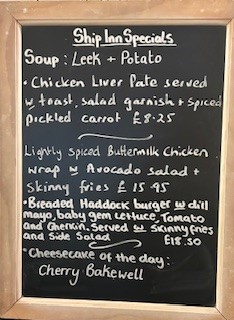 Ship Inn Specials
Soup : Leek + Potato
• Chicken Liver Pate served
w toast, salad garnish + Spiced
pickled carrot £8.25
Lightly spiced Buttermilk Chicken
wrap w Avocado salad +
Skinny fries £15.95
• Breaded Haddock burger w dill
mayo, baby gem lettuce, Tomato
and Gherkin. Served w Skinny fries
and Side Salad £18.50
• Cheesecake of the day :
Cherry Bakewell